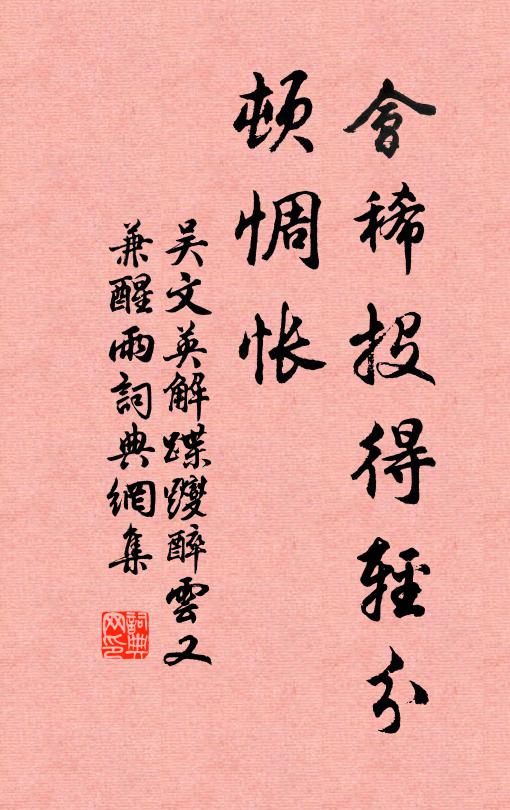 會稀投得輕分
頓惆悵
吴文英解蹀躞醉雲又
兼醒雨詞典網集
詞典
网印